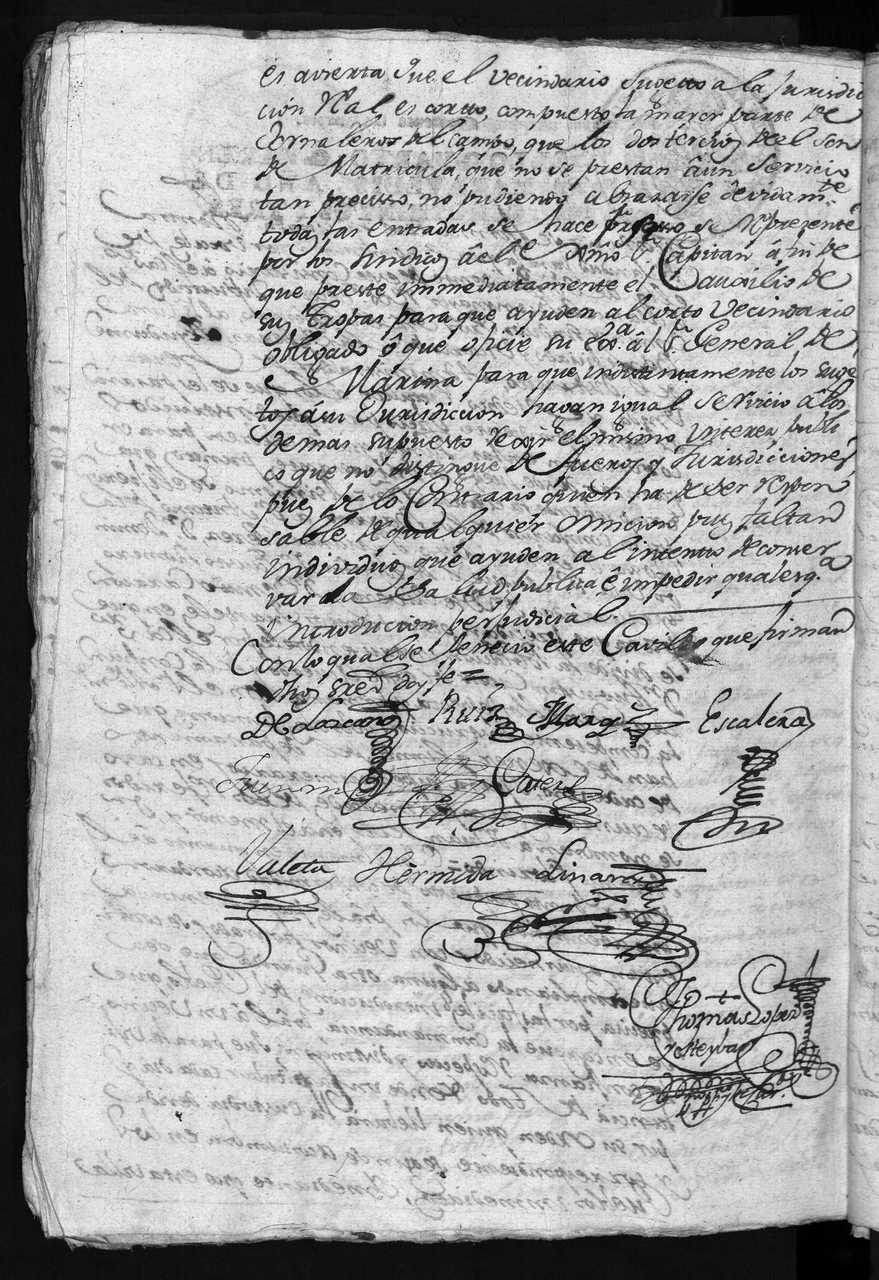 es avierta que el vecindario sugetto a la Jurisdic
ción Rl. es cortto, compuesto la mayor parte de
Jornaleros del campo, que los dos tercios de el son
de Matricula, que no se prestan â un Servicio
tan preciso, no pudiendo abrazarse devidamte.
todas las entradas se hace preciso se represente
por los Sindicos â el Exmo Sr. Capitan â fin de
que preste immediatamente el auxilio de
sus tropas para que ayuden al corto vecindario
obligado ô que oficie su Exa. âl Sr. General de
Marina para que indistintamente los suge
tos â su Jurisdiccion hagan igual servicio â los
demas supuesto de ser el mismo Ynteres publi
co que no distingue de fueros y Jurisdicciones
pues de lo Contrario quien ha de ser respon
sable de qualquier omicion, pues faltan
individuos que ayuden al intento de conser
var la Salud publica ê impedir qualesqa.
introducion perjudicial.
Con lo qual se fenecio este Cavildo que firman
dhos sres doy fe =
De Lozano Ruiz Marqz Escalera
Catero
Valeta Hermida Linares
Thomas Lopez
y Esteyban